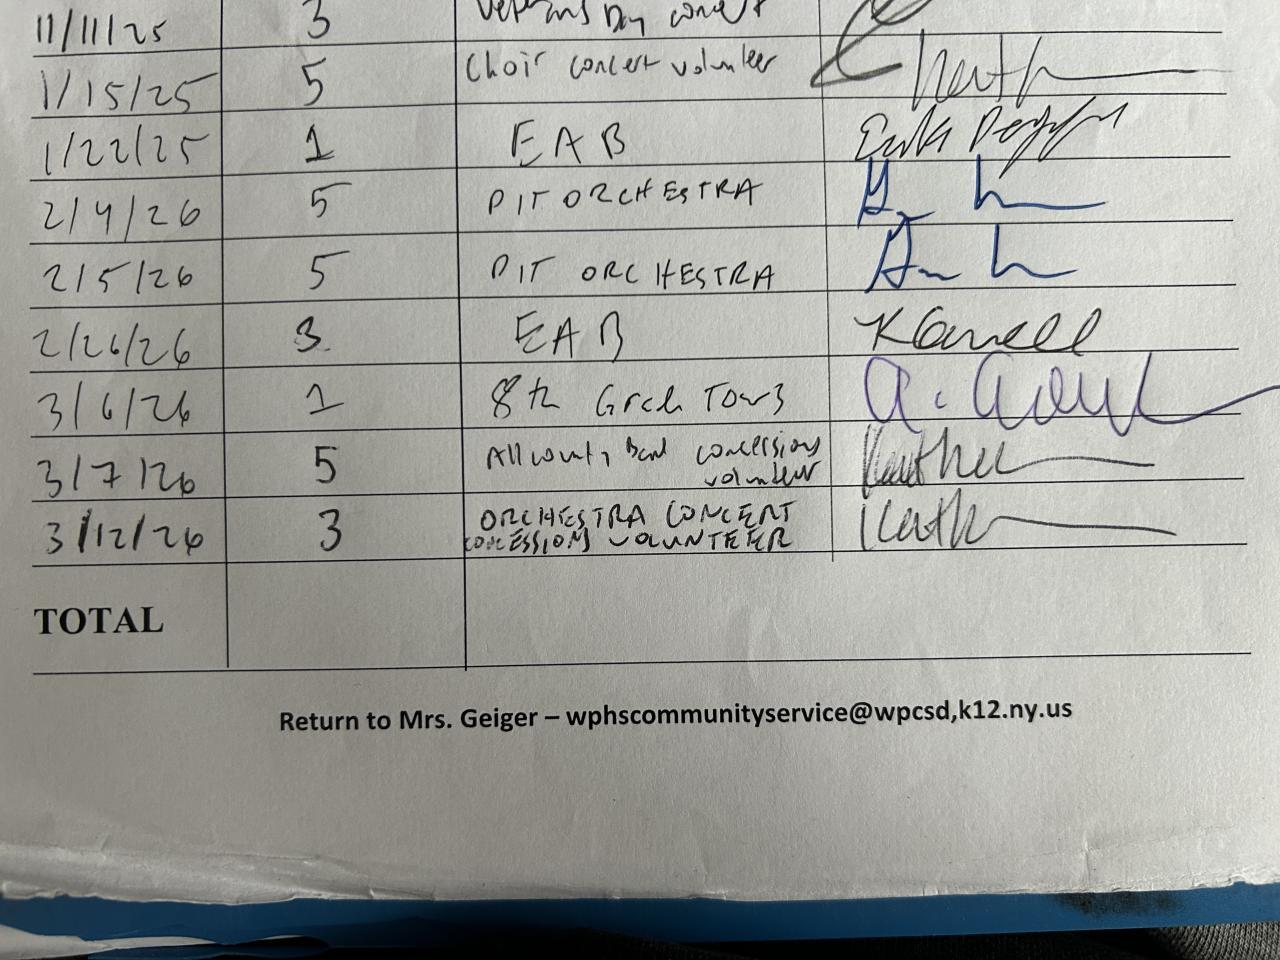 11/11/25 3 Veterans Day concert
1/15/25 5 Choir concert volunteer
1/22/25 1 EAB
2/4/26 5 PIT ORCHESTRA
2/5/26 5 PIT ORCHESTRA
2/26/26 3 EAB
3/6/26 1 8th Grade Tours
3/7/26 5 All county Band concessions
volunteer
3/12/26 3 ORCHESTRA CONCERT
CONCESSIONS VOLUNTEER
TOTAL
Return to Mrs. Geiger – wphscommunityservice@wpcsd,k12.ny.us